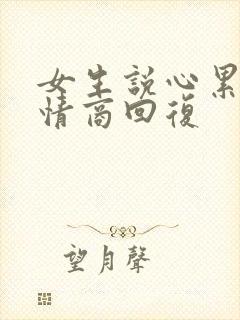 女生説心累
情商回復
望月聲